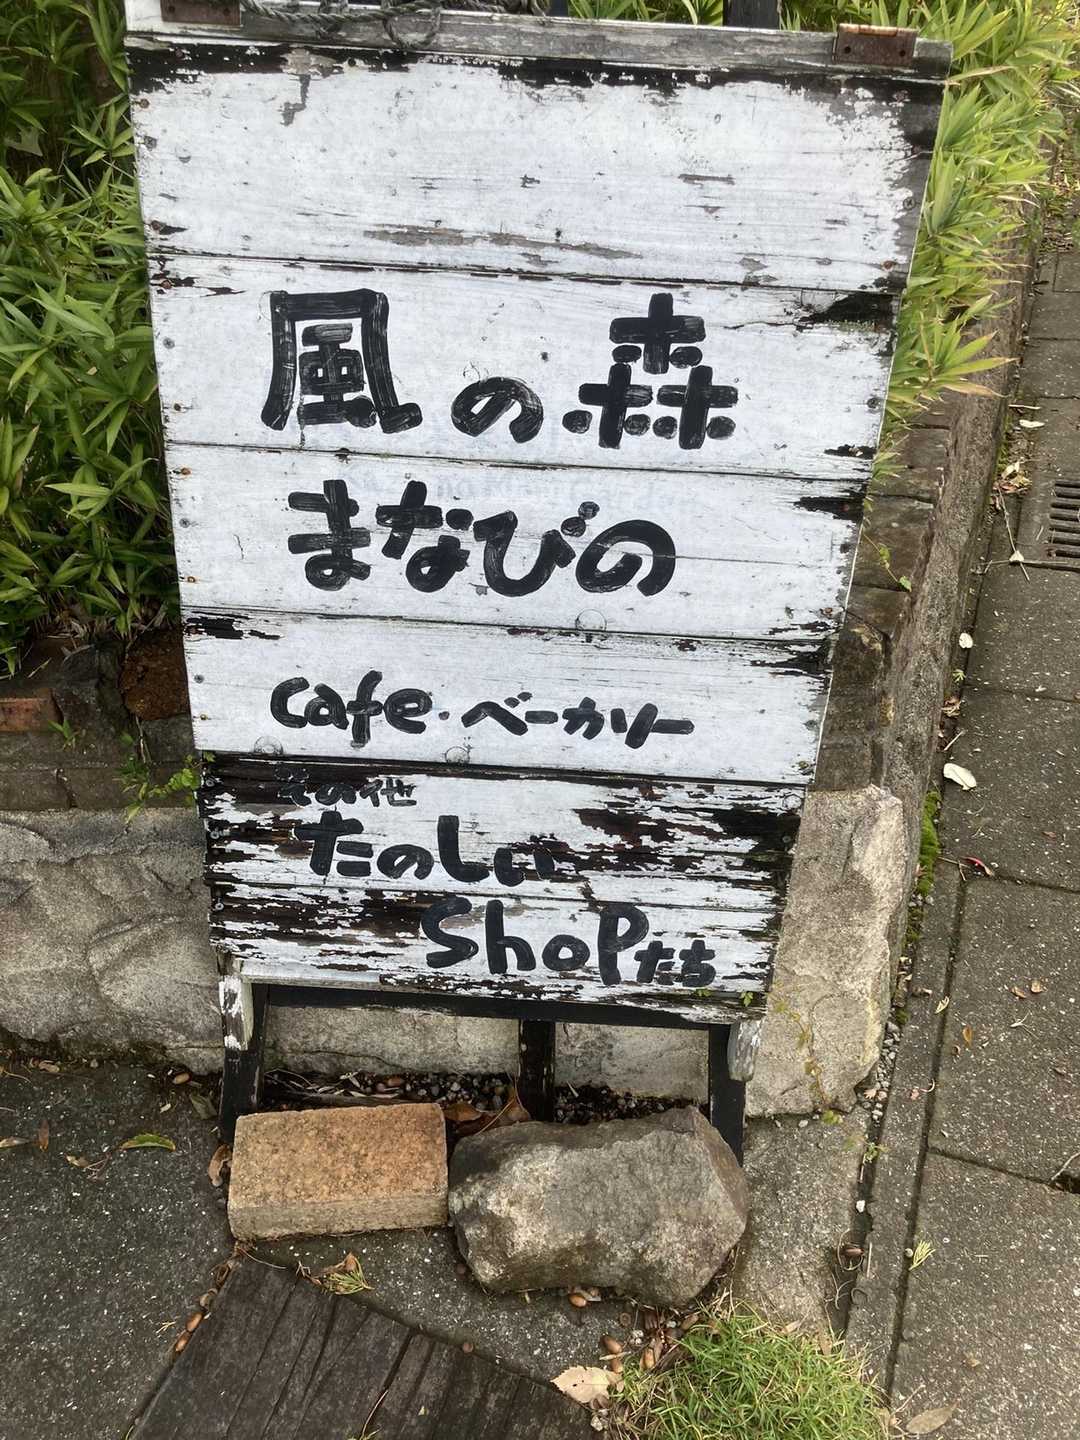 風の森
まなびの
cafe・ベーカリー
その他
たのしい
ShoPたち